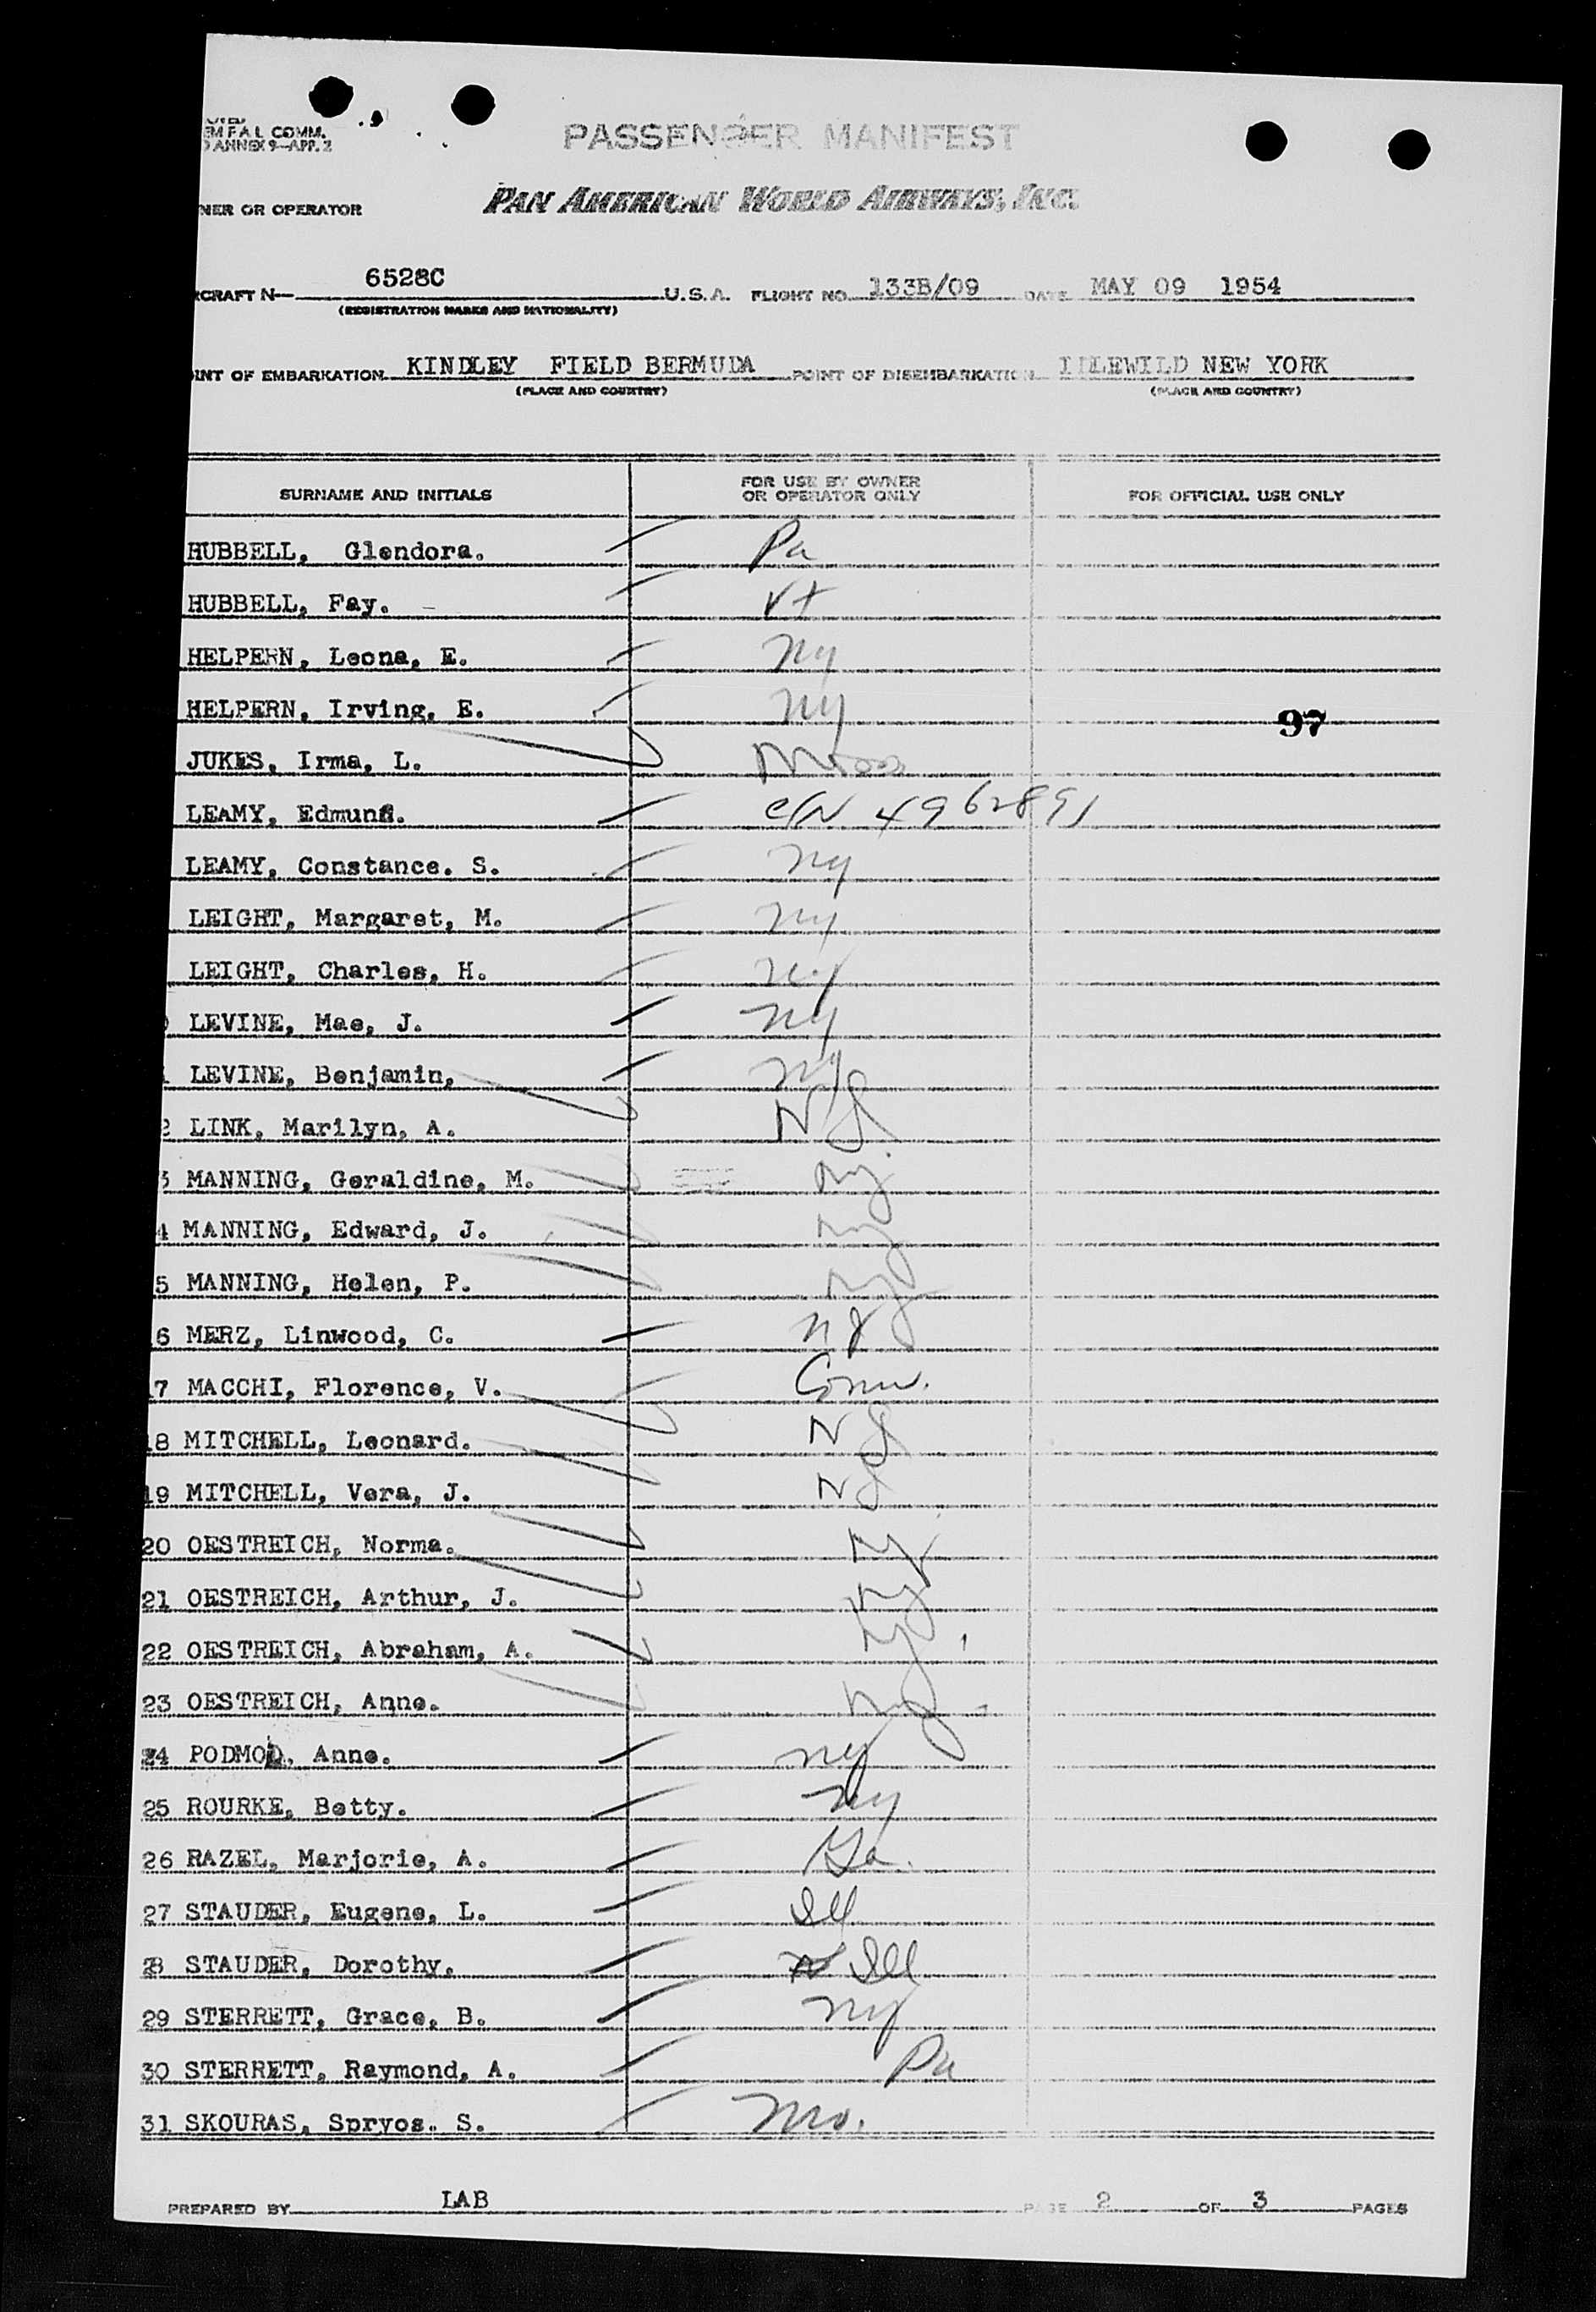 EM F.A.L. COMM.
ANNEX 9—APP. 2
PASSENGER MANIFEST
NER OR OPERATOR PAN AMERICAN WORLD AIRWAYS, INC.
RCRAFT N— 6528C U.S.A. FLIGHT NO. 133B/09 DATE MAY 09 1954
(REGISTRATION MARKS AND NATIONALITY)
INT OF EMBARKATION KINDLEY FIELD BERMUDA POINT OF DISEMBARKATION IDLEWILD NEW YORK
(PLACE AND COUNTRY) (PLACE AND COUNTRY)
SURNAME AND INITIALS FOR USE BY OWNER OR OPERATOR ONLY FOR OFFICIAL USE ONLY
HUBBELL, Glendora. Pa
HUBBELL, Fay. Vt
HELPERN, Leona, E. Ny
HELPERN, Irving, E. Ny
97
JUKES, Irma, L. Mass
LEAMY, Edmund. C/N 4962891
LEAMY, Constance. S. Ny
LEIGHT, Margaret, M. Ny
LEIGHT, Charles, H. Ny
LEVINE, Mae, J. Ny
LEVINE, Benjamin, Ny
2 LINK, Marilyn, A. NJ
3 MANNING, Geraldine, M. Ny
4 MANNING, Edward, J. Ny
5 MANNING, Helen, P. Ny
6 MERZ, Linwood, C. NJ
17 MACCHI, Florence, V. Conn.
18 MITCHELL, Leonard. NJ
19 MITCHELL, Vera, J. NJ
20 OESTREICH, Norma. Ny
21 OESTREICH, Arthur, J. Ny
22 OESTREICH, Abraham, A. Ny
23 OESTREICH, Anne. Ny
24 Anne. Ny
25 ROURKE, Betty. Ny
26 RAZEL, Marjorie, A. Ga.
27 STAUDER, Eugene, L. Ill
28 STAUDER, Dorothy. Ill
29 STERRETT, Grace, B. Ny
30 STERRETT, Raymond, A. Pa
31 SKOURAS, Spryos. S. Mo.
PREPARED BY LAB PAGE 2 OF 3 PAGES